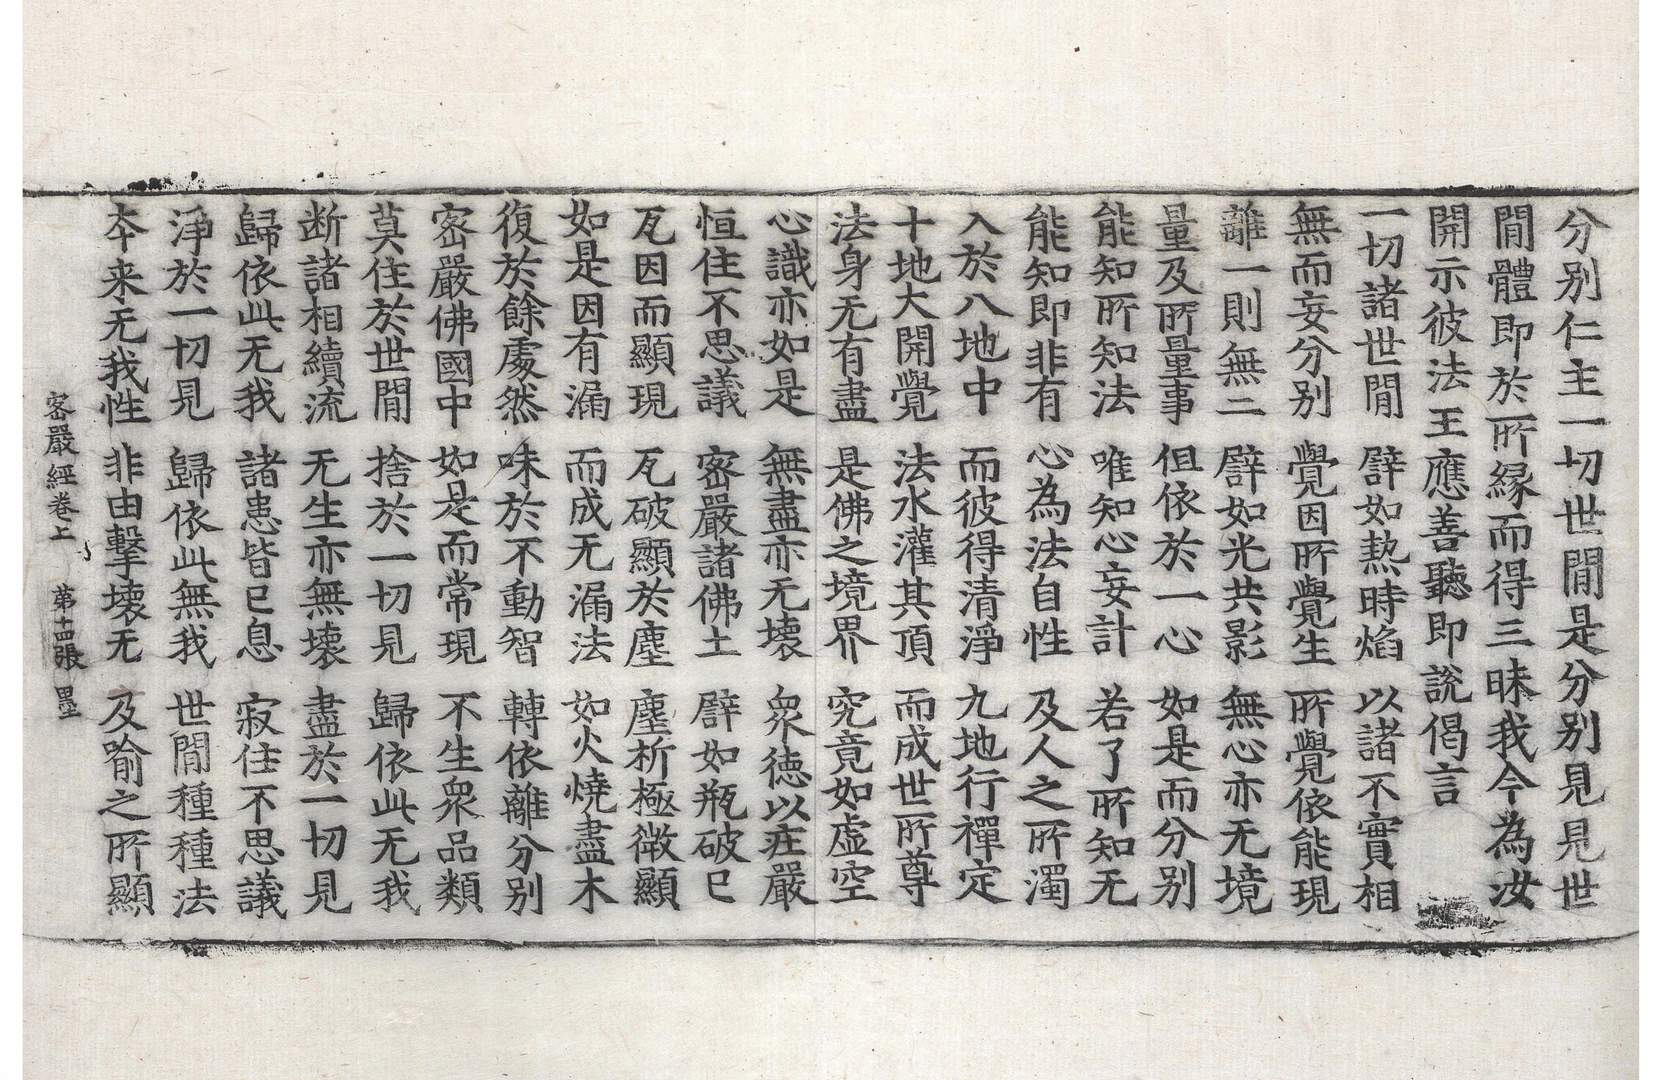 分別仁主一切世間是分別見見世
間體即於所縁而得三昧我今為汝
開示彼法王應善聽即說偈言
一切諸世間 譬如熱時焰 以諸不實相
無而妄分別 覺因所覺生 所覺依能現
離一則無二 譬如光共影 無心亦无境
量及所量事 但依於一心 如是而分別
能知所知法 唯知心妄計 若了所知无
能知即非有 心為法自性 及人之所濁
入於八地中 而彼得清淨 九地行禪定
十地大開覺 法水灌其頂 而成世所尊
法身无有盡 是佛之境界 究竟如虛空
心識亦如是 無盡亦无壞 衆德以莊嚴
恒住不思議 密嚴諸佛土 譬如瓶破已
瓦因而顯現 瓦破顯於塵 塵析極微顯
如是因有漏 而成无漏法 如火燒盡木
復於餘處然 味於不動智 轉依離分別
密嚴佛國中 如是而常現 不生衆品類
莫住於世間 捨於一切見 歸依此无我
断諸相續流 无生亦無壞 盡於一切見
歸依此无我 諸患皆已息 寂住不思議
淨於一切見 歸依此無我 世間種種法
本来无我性 非由擊壞无 及喻之所顯
密嚴經卷上 第十四張 墨